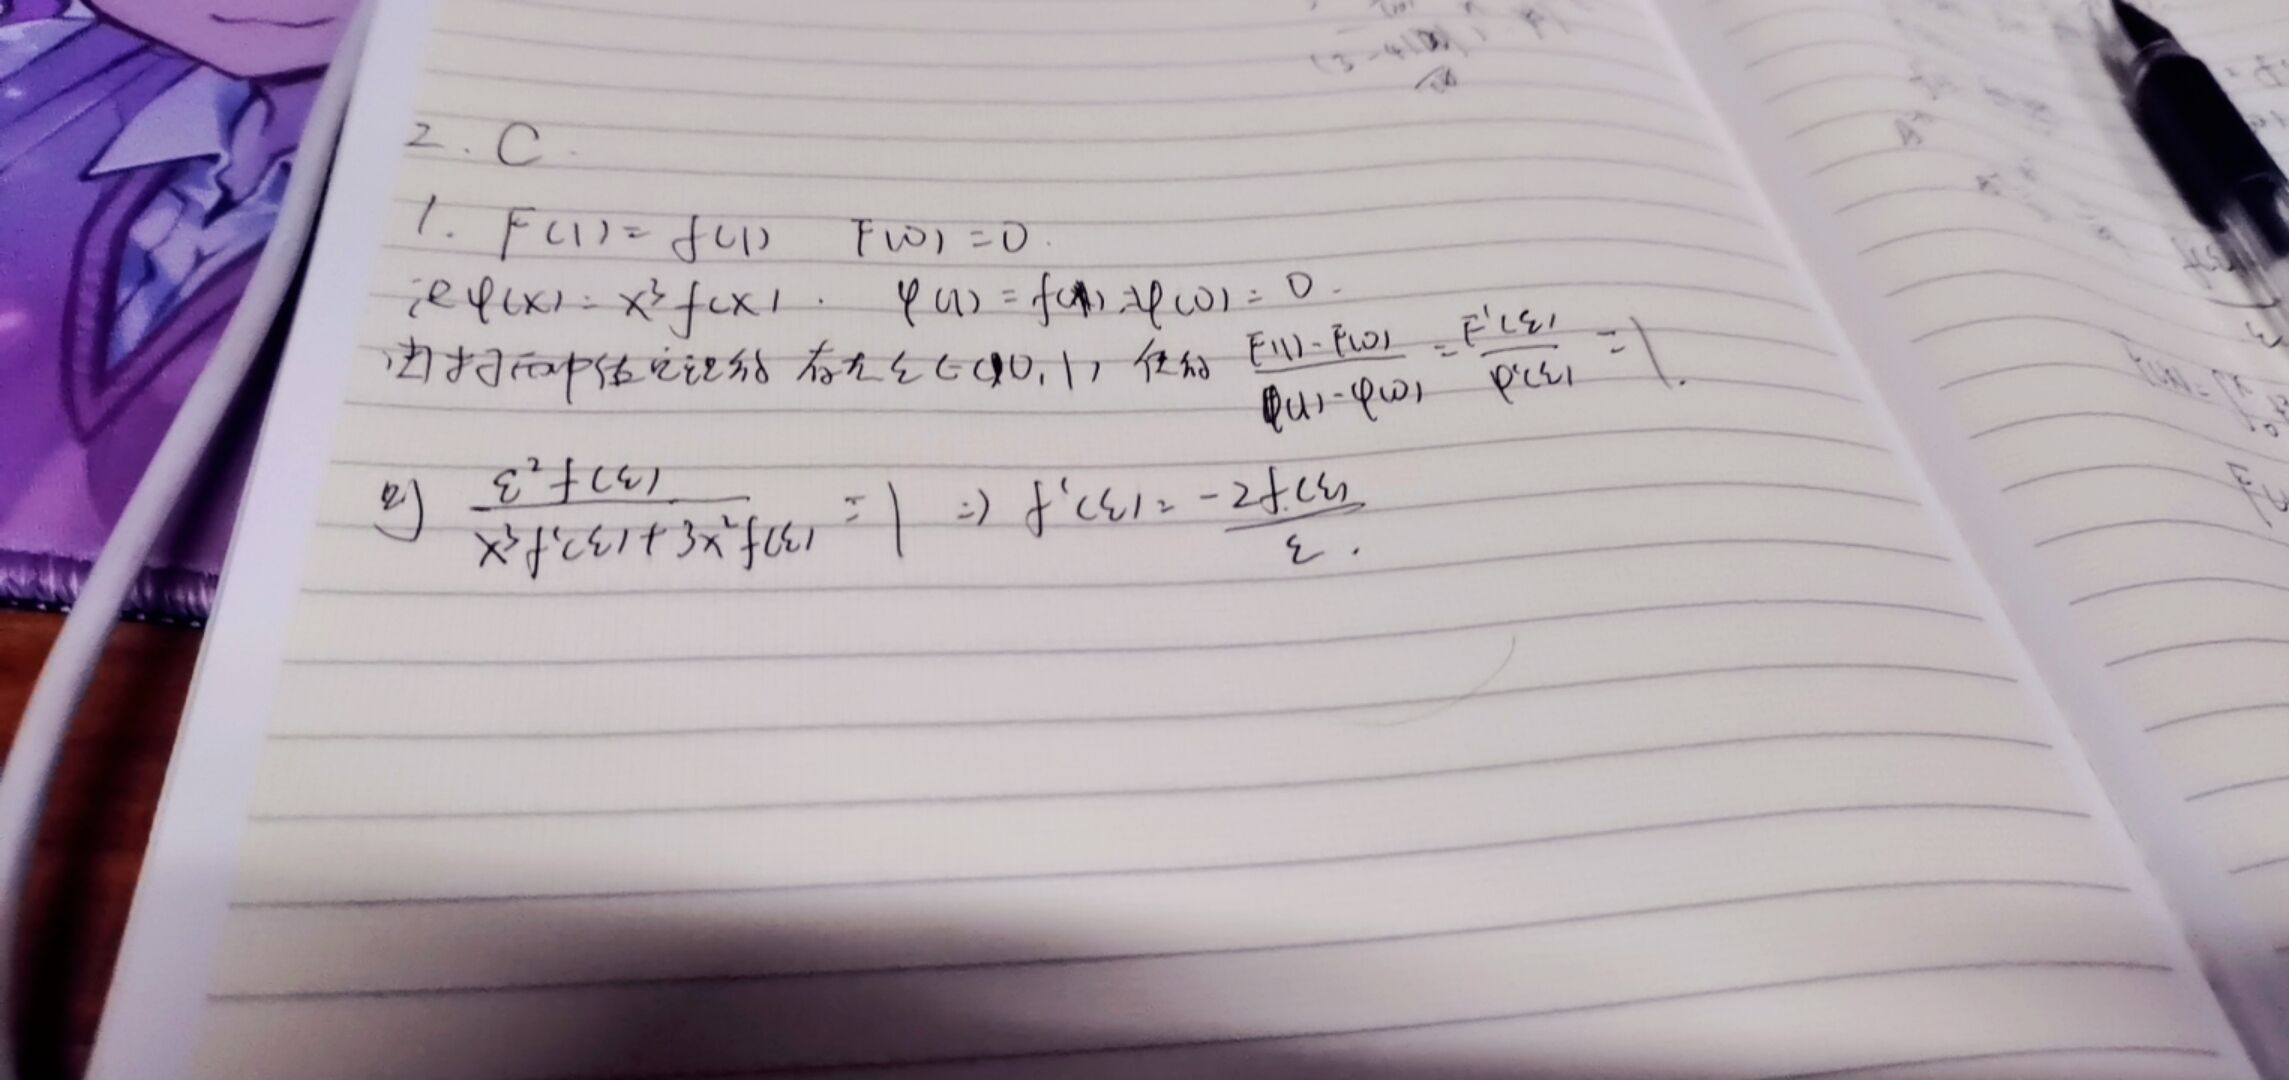 2. C.
1. F(1) = f(1) F(0) = 0.
设φ(x) = x³f(x). φ(1) = f(1) φ(0) = 0.
由柯西中值定理得 存在ξ∈(0,1) 使得 (F(1)-F(0))/(φ(1)-φ(0)) = F'(ξ)/φ'(ξ) = 1.
即 ξ²f(ξ)/(x³f'(ξ)+3x²f(ξ)) = 1 ⇒ f'(ξ) = -2f(ξ)/ξ.